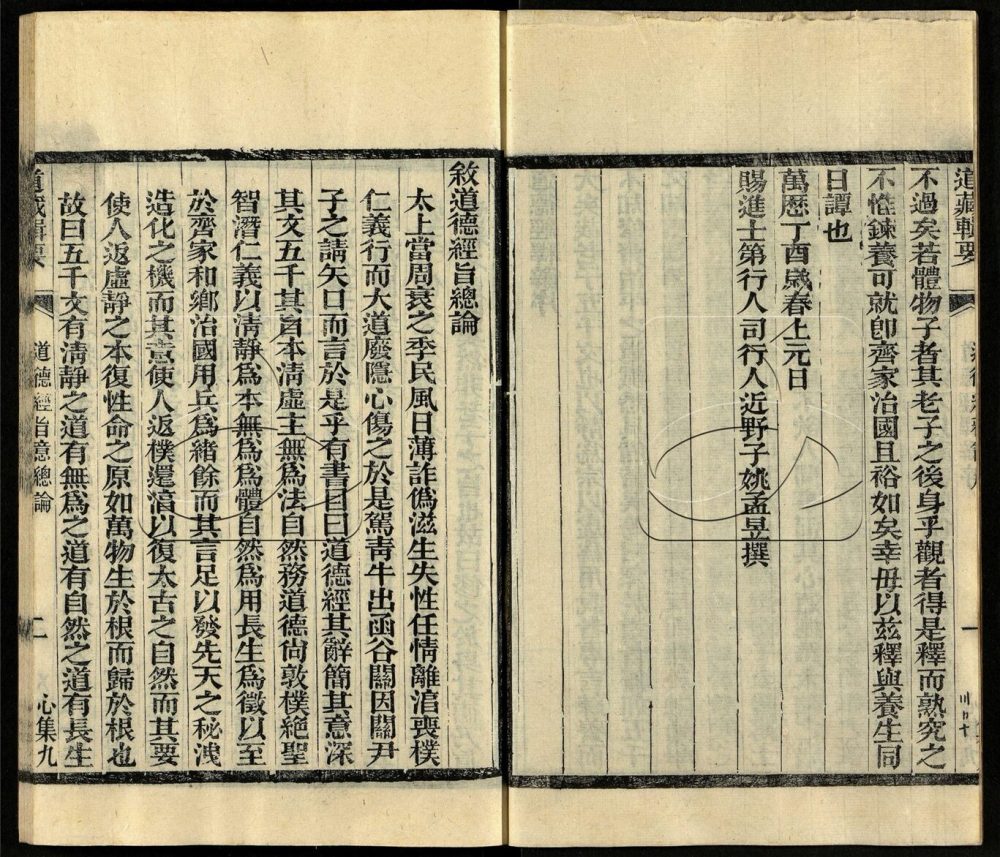 道藏輯要
不過矣若體物子者其老子之後身乎觀者得是釋而熟究之
不惟鍊養可就卽齊家治國且裕如矣幸毋以茲釋與養生同
日譚也
萬歷丁酉歲春上元日
賜進士第行人司行人近野子姚孟昱撰
敘道德經旨總論
太上當周衰之季民風日薄詐僞滋生失性任情離㴆喪樸
仁義行而大道廢隱心傷之於是駕靑牛出函谷關因關尹
子之請矢口而言於是乎有書目曰道德經其辭簡其意深
其文五千其旨本清虛主無爲法自然務道德尙敦樸絕聖
智潛仁義以清靜爲本無爲爲體自然爲用長生爲徵以至
於齊家和鄉治國用兵爲緒餘而其言足以發先天之秘洩
造化之機而其意使人返樸還㴆以復太古之自然而其要
使人返虛靜之本復性命之原如萬物生於根而歸於根也
故曰五千文有清靜之道有無爲之道有自然之道有長生
道藏輯要
道德經旨意總論
二
心集九